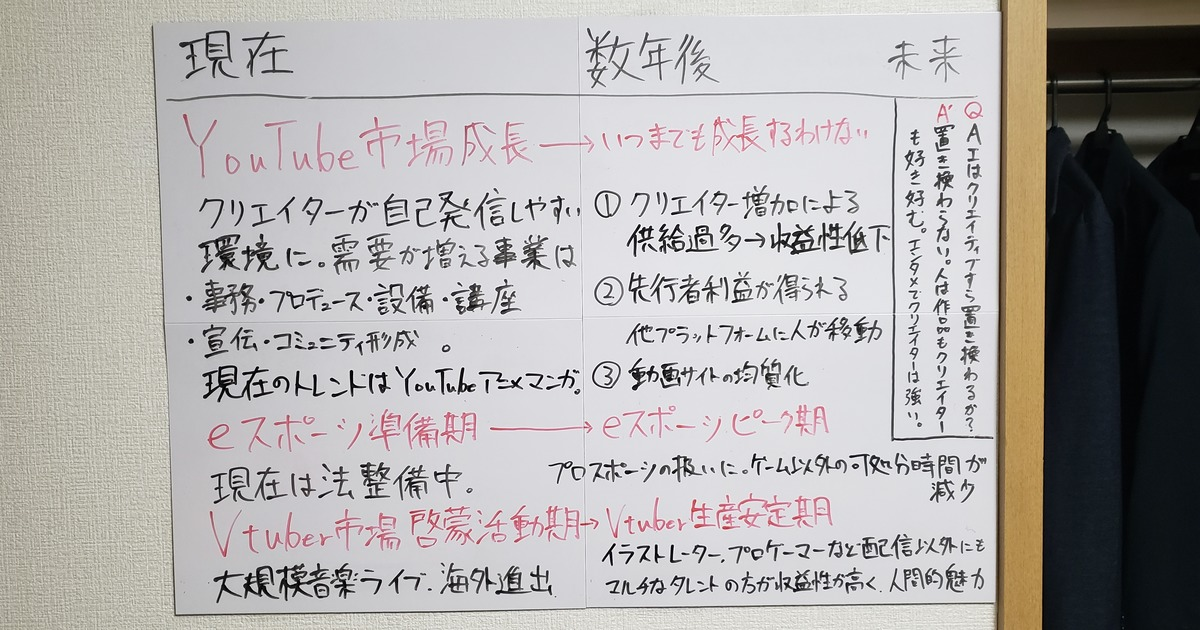 現在 数年後 未来
YouTube市場成長→いつまでも成長するわけない
クリエイターが自己発信しやすい
環境に。需要が増える事業は
・事務・プロデュース・設備・講座
・宣伝・コミュニティ形成 。
現在のトレンドはYouTubeアニメマンガ。
①クリエイター増加による
供給過多→収益性低下
②先行者利益が得られる
他プラットフォームに人が移動
③動画サイトの均質化
eスポーツ準備期→eスポーツピーク期
現在は法整備中。
プロスポーツの扱いに。ゲーム以外の可処分時間が
減少
Vtuber市場啓蒙活動期→Vtuber生産安定期
大規模音楽ライブ.海外進出
イラストレーター.プロゲーマーなど配信以外にも
マルチなタレントの方が収益性が高く.人間的魅力
Q AIはクリエイティブすら置き換わるか?
A 置き換わらない。人は作品もクリエイター
も好き好む。エンタメでクリエイターは強い。